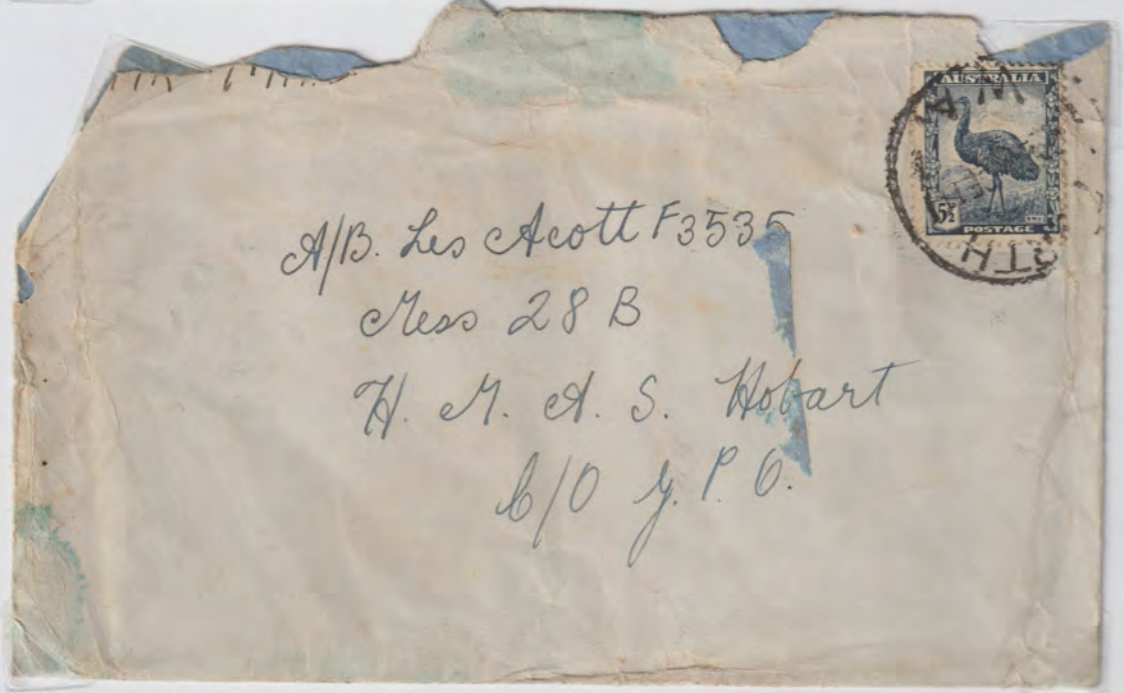 AUSTRALIA
5½
POSTAGE
A/B. Les Acott F3535
Mess 28 B
H. M. A. S. Hobart
C/O G. P. O.